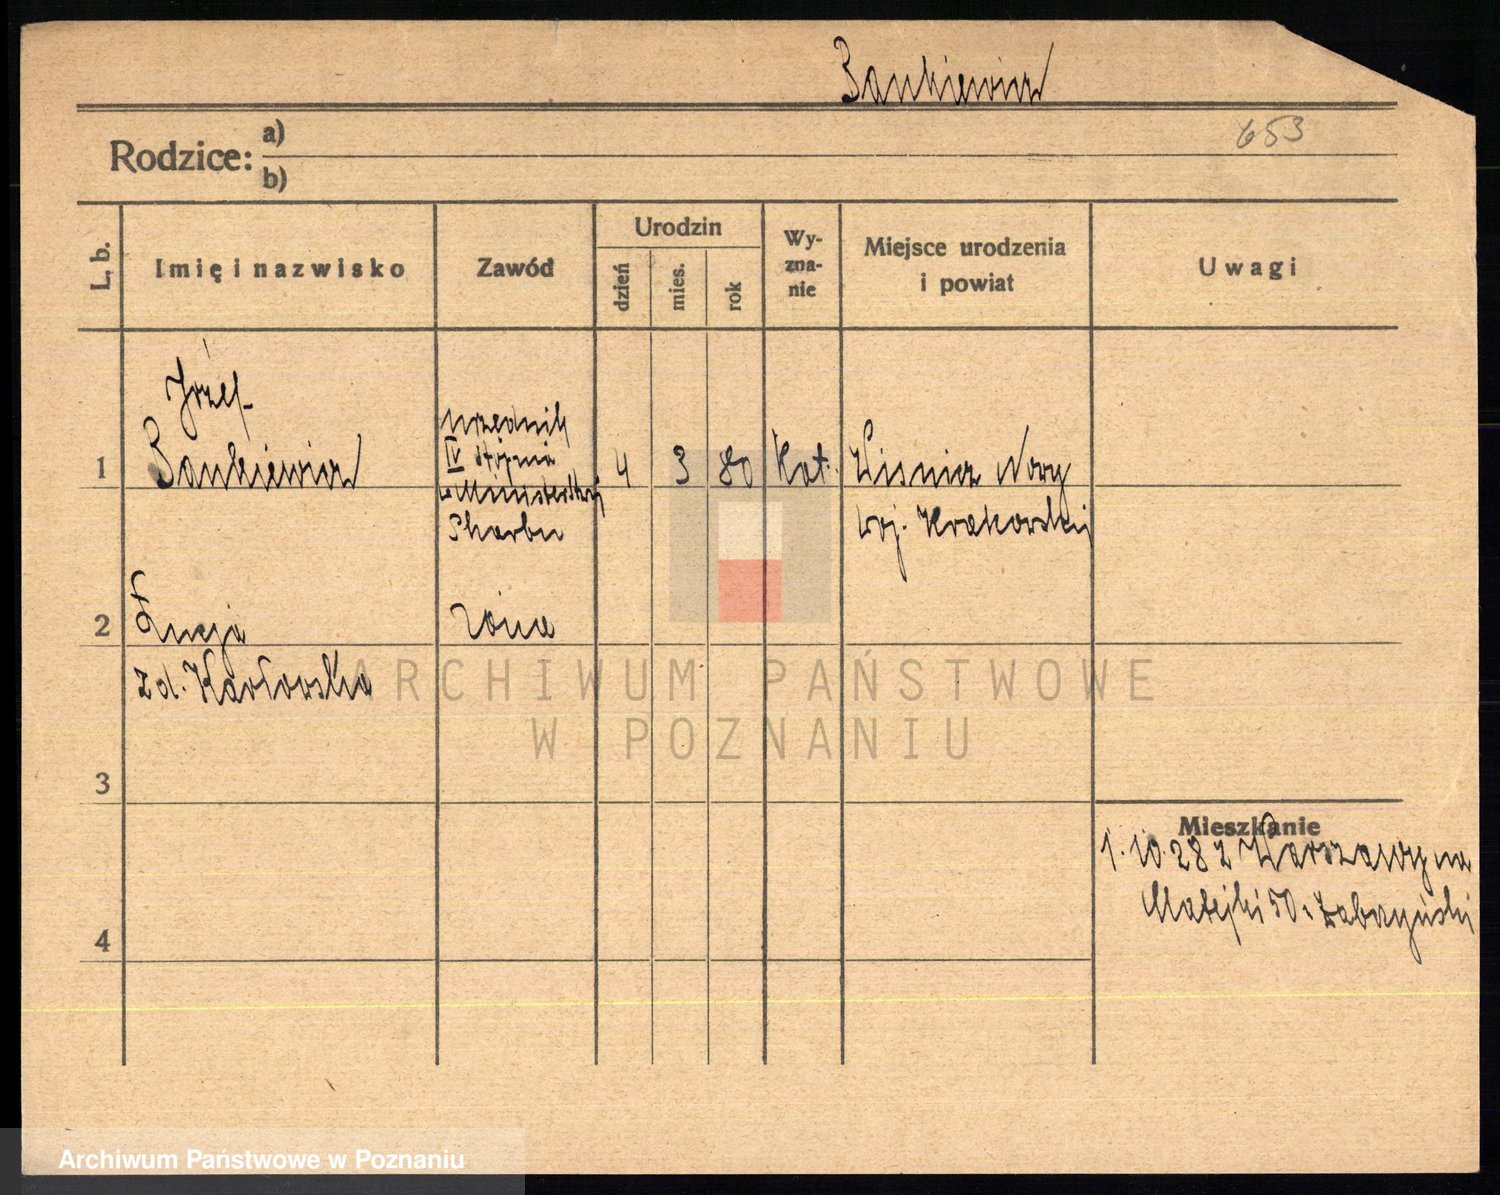 Bankiewicz
653
Rodzice: a)
b)
L. b.
Imię i nazwisko
Zawód
Urodzin
dzień
mies.
rok
Wy-
zna-
nie
Miejsce urodzenia
i powiat
Uwagi
Józef
urzędnik
1 Bankiewicz IV stopnia 4 3 80 kat. Wiśnicz Nowy
w Ministerstwie
Skarbu woj. Krakowskie
2 Łucja żona
zd. Karłowska
ARCHIWUM PAŃSTWOWE
W POZNANIU
3
Mieszkanie
1.10.28 z Warszawy na
Matejki 50 u Zabrzyński
4
Archiwum Państwowe w Poznaniu